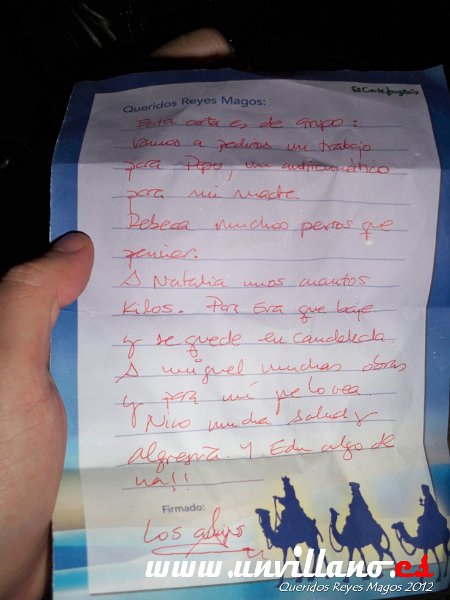 El Corte Inglés
Queridos Reyes Magos:
Esta carta es de grupo:
Vamos a pediros un trabajo
para Pepo, un antirreumático
para mi madre.
Rebeca muchos perros que
peinar.
A Natalia unos cuantos
kilos. Para Eva que baje
y se quede en candeleda.
A miguel muchas obras
y para mí pelovea.
Nico mucha salud y
alegria. Y Edu algo de
Firmado:
Los
www.unvillano.es
Queridos Reyes Magos 2012